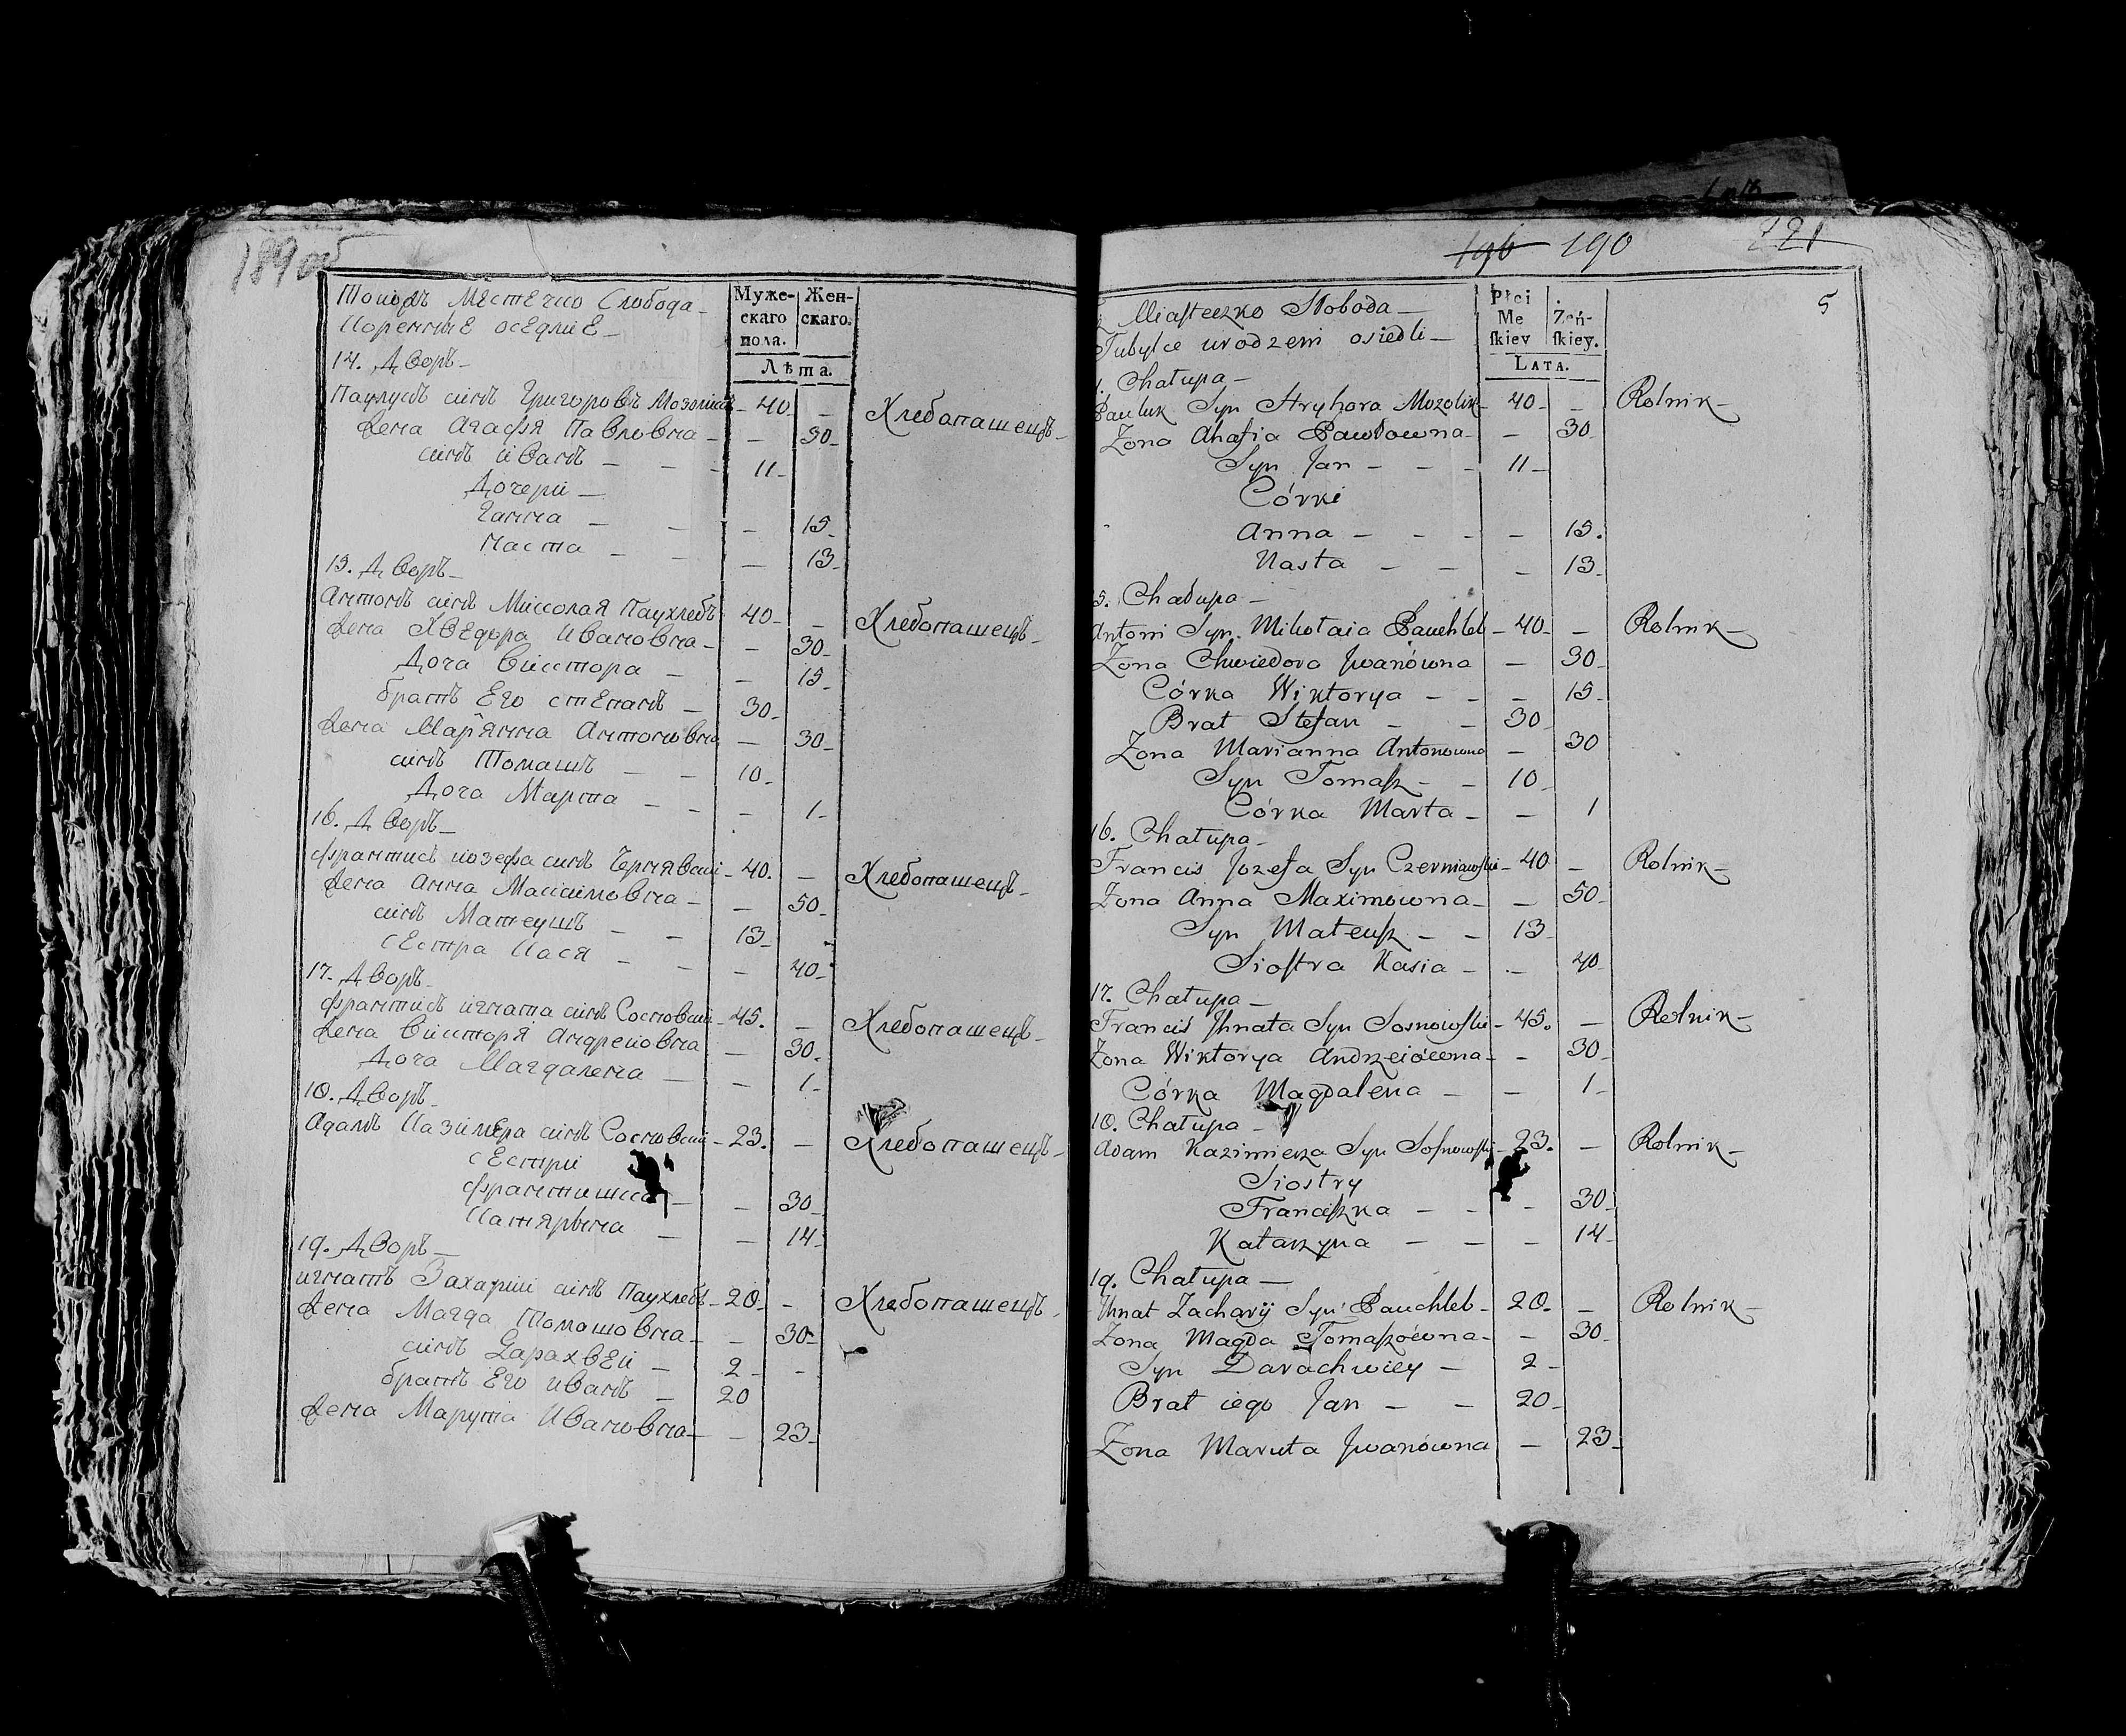 189 об
Мѣстечко Слобода
Коренные осѣдлые
Муже-
скаго
пола.
Жен-
скаго.
Лѣта.
14. Дворъ
Паулюкъ синъ Григоровъ Мозолик 40 — Хлебопашецъ
Жена Агафія Павловна — 30
синъ Иванъ — 11
Дочери
Ганна — 15
Наста — 13
15. Дворъ
Антонъ синъ Миколая Паухлебъ 40 — Хлебопашецъ
Жена Хведора Ивановна — 30
Доча Викторя — 15
братъ Его стЕпанъ — 30
Жена Марьянна Антоновна — 30
синъ Томашъ — 10
Доча Марта — 1
16. Дворъ
францишъ иозефа синъ Чернявский 40. — Хлебопашецъ
Жена Анна Максимовна — 50
синъ Матеушъ — 13
сЕстра Кася — 40
17. Дворъ
францишъ игната синъ Сосновский 45. — Хлебопашецъ
Жена Викторя Андреиовна — 30
Доча Магдалена — 1
18. Дворъ
Адамъ Казимѣра синъ Сосновский 23. — Хлебопашецъ
сЕстри
францишка — 30
Катярына — 14
19. Дворъ
игнатъ Захарии синъ Паухлебъ 28. — Хлебопашецъ
Жена Магда Томашовна — 30
синъ Дарахвей — 2
братъ Его иванъ — 20
Жена Марута Ивановна — 23
196 190 221
5
Miasteczko Słoboda
Tubylce urodzeni osiedli
Płci
Me
ſkiey
Żeń-
ſkiey.
Lata.
Chałupa
Pauluk Syn Hryhora Mozolik 40 — Rolnik
Żona Ahafia Pawłowna — 30
Syn Jan — 11
Córki
Anna — 15.
Nasta — 13
5. Chałupa
Antoni Syn Mikołaia Pauchleb 40 — Rolnik
Żona Chwiedora Jwanówna — 30
Córka Wiktorya — 15
Brat Stefan — 30
Żona Marianna Antonowna — 30
Syn Tomaſz — 10
Córka Marta — 1
16. Chałupa
Francis Jozefa Syn Czerniawſki 40 — Rolnik
Żona Anna Maximowna — 50
Syn Mateuſz — 13
Sioſtra Kasia — 40
17. Chałupa
Francis Jhnata Syn Sosnowſki 45. — Rolnik
Żona Wiktorya Andrzeiówna — 30
Córka Magdalena — 1
18. Chałupa
Adam Kazimierza Syn Soſnowſki 23. — Rolnik
Siostry
Franciſzka — 30
Katarzyna — 14
19. Chałupa
Jhnat Zacharij Syn Pauchleb 28. — Rolnik
Żona Magda Tomaſzówna — 30
Syn Darachwiey — 2
Brat iego Jan — 20
Żona Maruta Jwanówna — 23